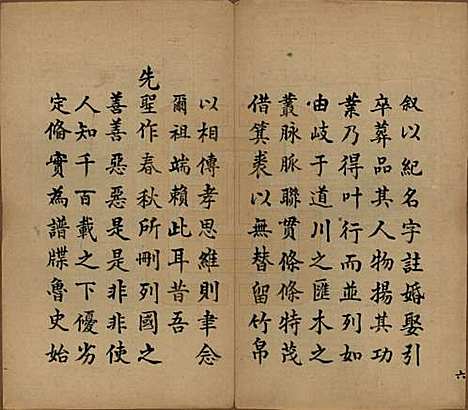 叙以紀名字註婚娶引
卒葬品其人物揚其功
業乃得叶行而並列如
由岐于道川之匯木之
叢脉脈聯貫條條特茂
借箕裘以無替留竹帛
六
以相傳孝思維則聿念
爾祖端賴此耳昔吾
先聖作春秋所刪列國之
善善惡惡是是非非使
人知千百載之下優劣
定俻實為譜牒魯史始